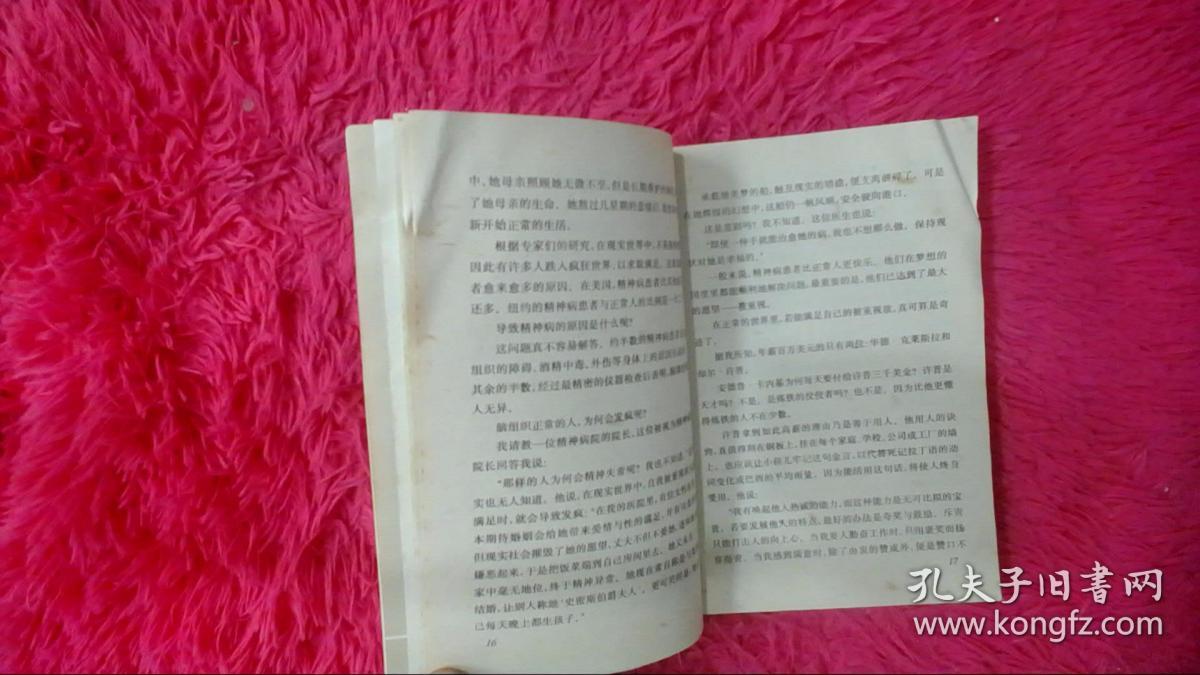 中，她母亲照顾她无微不至，但是长期看护
了她母亲的生命。她熬过几星期的悲恸后，
新开始正常的生活。
根据专家们的研究，在现实世界中，不
因此有许多人跌入疯狂世界，以求取满足。
者愈来愈多的原因。在美国，精神病患者比
还多。纽约的精神病患者与正常人的比例是
导致精神病的原因是什么呢？
这问题真不容易解答。约半数的精神病患者
组织的障碍、酒精中毒、外伤等身体上的
其余的半数，经过最精密的仪器检查后表明，
人无异。
脑组织正常的人，为何会发疯呢？
我请教一位精神病院的院长，这位被视为精神
院长回答我说：
“那样的人为何会精神失常呢？我也不知道。
实也无人知道。他说，在现实世界中，自我被重视
满足时，就会导致发疯：“在我的医院里，有位女性
本期待婚姻会给她带来爱情与性的满足，并有可爱
但现实社会摧毁了她的愿望，丈夫不但不爱她，
嫌恶起来，于是把饭菜端到自己房间里去。她又
家中毫无地位，终于精神异常。她现在
结婚，让别人称她‘史密斯伯爵夫人’。更可笑的是，
己每天晚上都生孩子。”
16
承载她美梦的船，触及现实的暗礁，便支离破碎了。可是
在她辉煌的幻想中，这船仍一帆风顺，安全驶向港口。
这是悲剧吗？我不知道。这位医生也说：
“即使一伸手就能治愈她的病，我也不想那么做。保持现
状对她是幸福的。”
一般来说，精神病患者比正常人更快乐。他们在梦想的
国度里都能顺利地解决问题。最重要的是，他们已达到了最大
的愿望——被重视。
在正常的世界里，若能满足自己的被重视欲，真可算是奇
迹了。
据我所知，年薪百万美元的只有两位：华德 克莱斯拉和
却尔·肖普。
安德鲁·卡内基为何每天要付给许普三千美金？许普是
天才吗？不是。是炼铁的佼佼者吗？也不是。因为比他更懂
得炼铁的人不在少数。
许普拿到如此高薪的理由乃是善于用人。他用人的诀
窍，真值得刻在铜板上，挂在每个家庭、学校、公司或工厂的墙
上。也应该让小孩儿牢记这句金言，以代替死记拉丁语的动
词变化或巴西的平均雨量。因为能活用这句话，将使人终身
受用。他说：
“我有唤起他人热诚的能力，而这种能力是无可比拟的宝
我。若要发展他人的特点，最好的办法是夸奖与鼓励。斥责
只能打击人的向上心。当我要人勤奋工作时，只用褒奖而杨
弃指责。当我感到满意时，除了由衷的赞成外，便是赞口不
17
孔夫子旧书网
www.kongfz.com